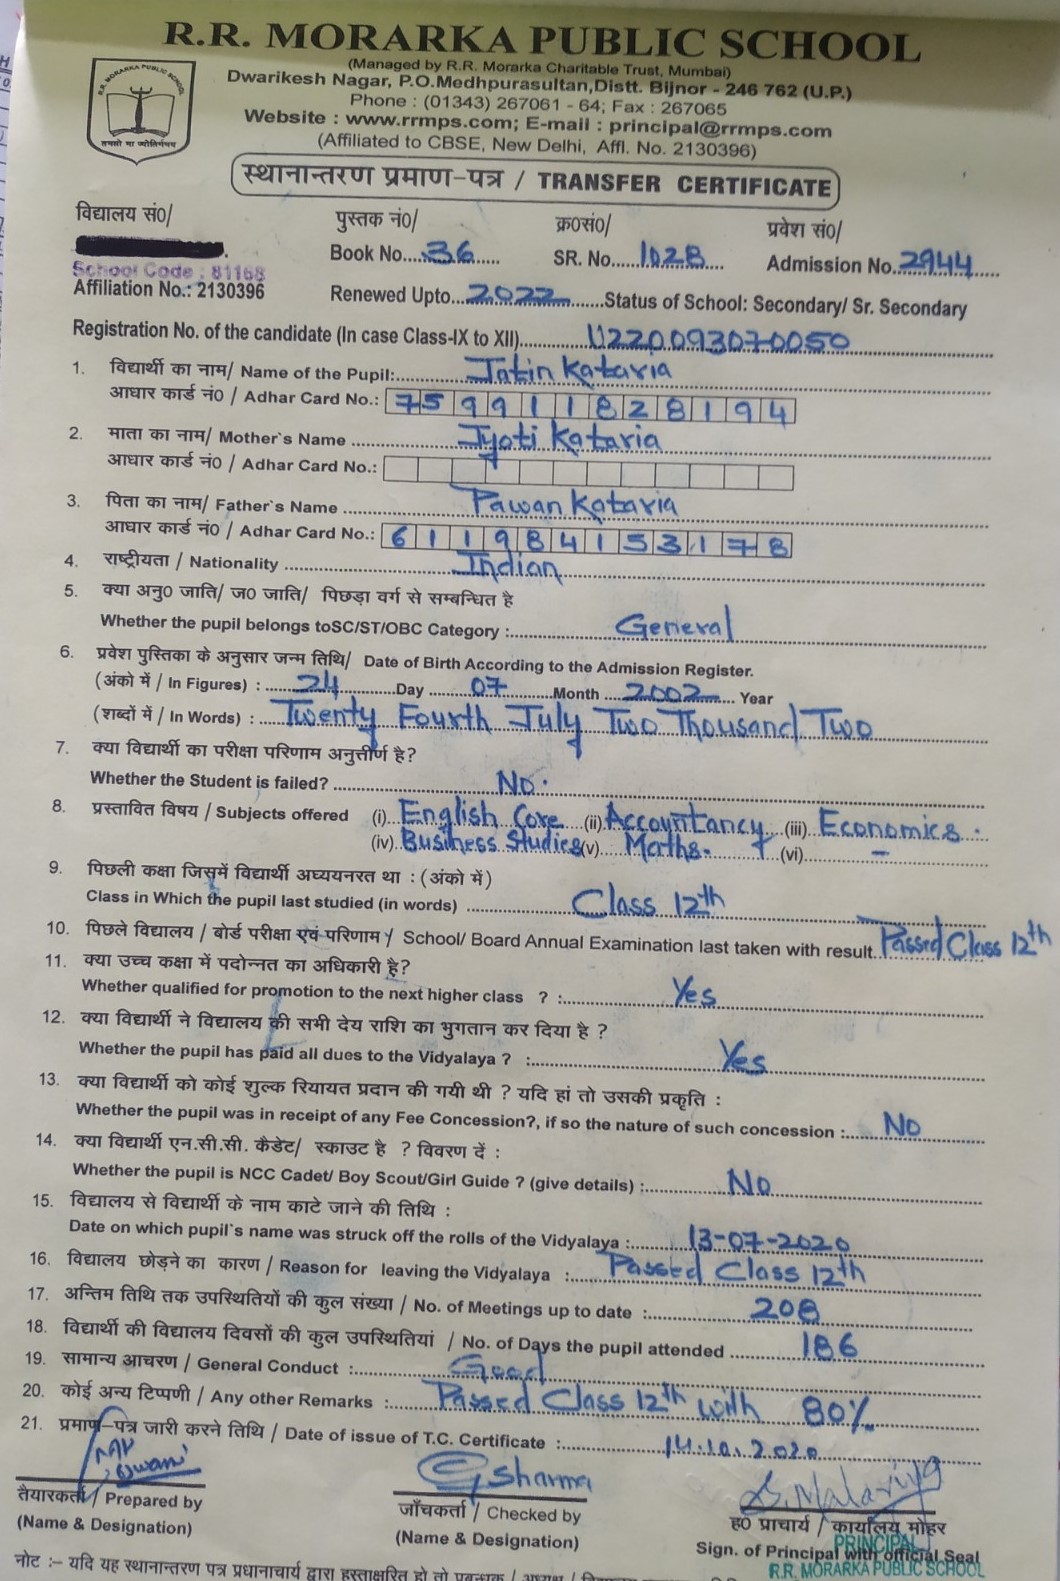 R.R. MORARKA PUBLIC SCHOOL
(Managed by R.R. Morarka Charitable Trust, Mumbai)
Dwarikesh Nagar, P.O.Medhpurasultan,Distt. Bijnor - 246 762 (U.P.)
Phone : (01343) 267061 - 64; Fax : 267065
Website : www.rrmps.com; E-mail : principal@rrmps.com
(Affiliated to CBSE, New Delhi, Affl. No. 2130396)
R.R. MORARKA PUBLIC SCHOOL
तमसो मा ज्योतिर्गमय
स्थानान्तरण प्रमाण-पत्र / TRANSFER CERTIFICATE
विद्यालय सं०/ पुस्तक नं०/ क्र०सं०/ प्रवेश सं०/
Book No. 36 SR. No. 1028 Admission No. 2944
School Code : 81168
Affiliation No.: 2130396 Renewed Upto 2022 Status of School: Secondary/ Sr. Secondary
Registration No. of the candidate (In case Class-IX to XII) U220093070050
1. विद्यार्थी का नाम/ Name of the Pupil: Jatin Kataria
आधार कार्ड नं० / Adhar Card No.: 759911828194
2. माता का नाम/ Mother`s Name Jyoti Kataria
आधार कार्ड नं० / Adhar Card No.:
3. पिता का नाम/ Father`s Name Pawan Kataria
आधार कार्ड नं० / Adhar Card No.: 611984153178
4. राष्ट्रीयता / Nationality Indian
5. क्या अनु० जाति/ ज० जाति/ पिछड़ा वर्ग से सम्बन्धित है
Whether the pupil belongs toSC/ST/OBC Category : General
6. प्रवेश पुस्तिका के अनुसार जन्म तिथि/ Date of Birth According to the Admission Register.
(अंको में / In Figures) : 24 Day 07 Month 2002 Year
(शब्दों में / In Words) : Twenty Fourth July Two Thousand Two
7. क्या विद्यार्थी का परीक्षा परिणाम अनुत्तीर्ण है?
Whether the Student is failed? No.
8. प्रस्तावित विषय / Subjects offered (i) English Core (ii) Accountancy (iii) Economics
(iv) Business Studies (v) Maths (vi) -
9. पिछली कक्षा जिसमें विद्यार्थी अघ्ययनरत था : (अंको में)
Class in Which the pupil last studied (in words) Class 12th
10. पिछले विद्यालय / बोर्ड परीक्षा एवं परिणाम / School/ Board Annual Examination last taken with result Passed Class 12th
11. क्या उच्च कक्षा में पदोन्नत का अधिकारी है?
Whether qualified for promotion to the next higher class ? : Yes
12. क्या विद्यार्थी ने विद्यालय की सभी देय राशि का भुगतान कर दिया है ?
Whether the pupil has paid all dues to the Vidyalaya ? : Yes
13. क्या विद्यार्थी को कोई शुल्क रियायत प्रदान की गयी थी ? यदि हां तो उसकी प्रकृति :
Whether the pupil was in receipt of any Fee Concession?, if so the nature of such concession : NO
14. क्या विद्यार्थी एन.सी.सी. कैडेट/ स्काउट है ? विवरण दें :
Whether the pupil is NCC Cadet/ Boy Scout/Girl Guide ? (give details) : No
15. विद्यालय से विद्यार्थी के नाम काटे जाने की तिथि :
Date on which pupil`s name was struck off the rolls of the Vidyalaya : 13-07-2020
16. विद्यालय छोड़ने का कारण / Reason for leaving the Vidyalaya : Passed Class 12th
17. अन्तिम तिथि तक उपस्थितियों की कुल संख्या / No. of Meetings up to date : 208
18. विद्यार्थी की विद्यालय दिवसों की कुल उपस्थितियां / No. of Days the pupil attended 186
19. सामान्य आचरण / General Conduct : Good
20. कोई अन्य टिप्पणी / Any other Remarks : Passed Class 12th with 80%
21. प्रमाण-पत्र जारी करने तिथि / Date of issue of T.C. Certificate : 14.10.2020
Sharma S. Malariya
तैयारकर्ता / Prepared by जाँचकर्ता / Checked by ह० प्राचार्य / कार्यालय मोहर
(Name & Designation) (Name & Designation) Sign. of Principal with official Seal
PRINCIPAL
R.R. MORARKA PUBLIC SCHOOL
नोट :- यदि यह स्थानान्तरण पत्र प्रधानाचार्य द्वारा हस्ताक्षरित हो तो